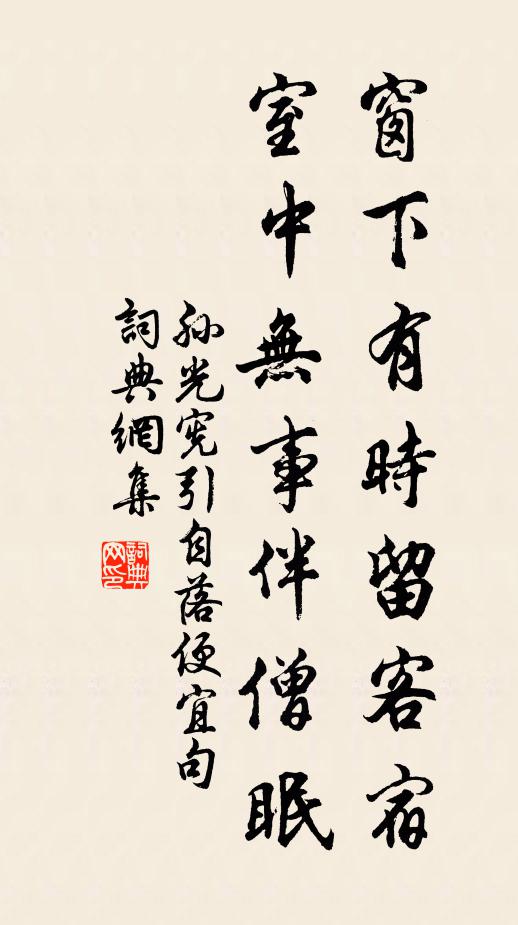 窗下有時留客宿
室中無事伴僧眠
孫光憲引自落便宜句
詞典網集
詞典網印